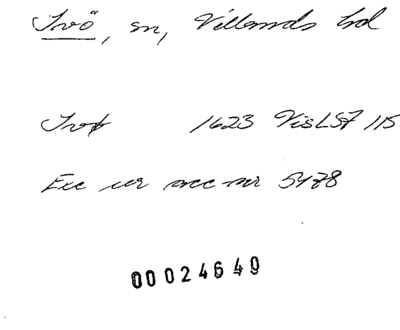 Ivö, sn, Villands hd
Ivøf 1623 VisLSF 115
Exc ur acc nr 5478
00024649